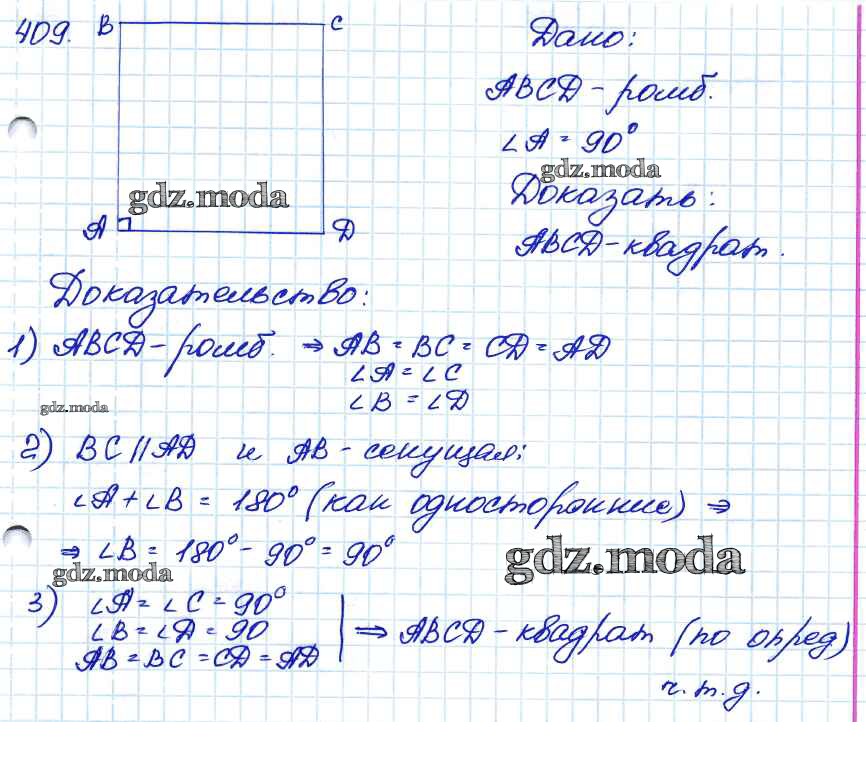 409. B C
A D
gdz.moda
Дано:
ABCD - ромб.
∠A = 90°
gdz.moda
Доказать:
ABCD - квадрат.
Доказательство:
1) ABCD - ромб. ⇒ AB = BC = CD = AD
∠A = ∠C
∠B = ∠D
gdz.moda
2) BC || AD и AB - секущая;
∠A + ∠B = 180° (как односторонние) ⇒
⇒ ∠B = 180° - 90° = 90°
gdz.moda
gdz.moda
3) ∠A = ∠C = 90°
∠B = ∠D = 90
AB = BC = CD = AD
⇒ ABCD - квадрат (по опред)
ч.т.д.